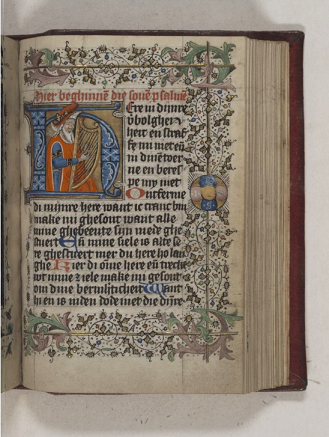 Hier beghinnē die souē psalmē
Ere in dijnre
v̄bolghen
heit en straf
fe mi niet en̄
in dinē toer
ne en beris
pe mi niet
Ontferme
di mijnre here want ic cranc bin
make mi ghesont want alle
mine ghebeente sijn mede ghe
stuert En̄ mine siele is alte se
re ghestuert mer du here holan
ghe Kier di o mine here en̄ treck
wt mine siele make mi ghesont
om dine bermhertichert Want
hi en is niden dode niet die dijnre